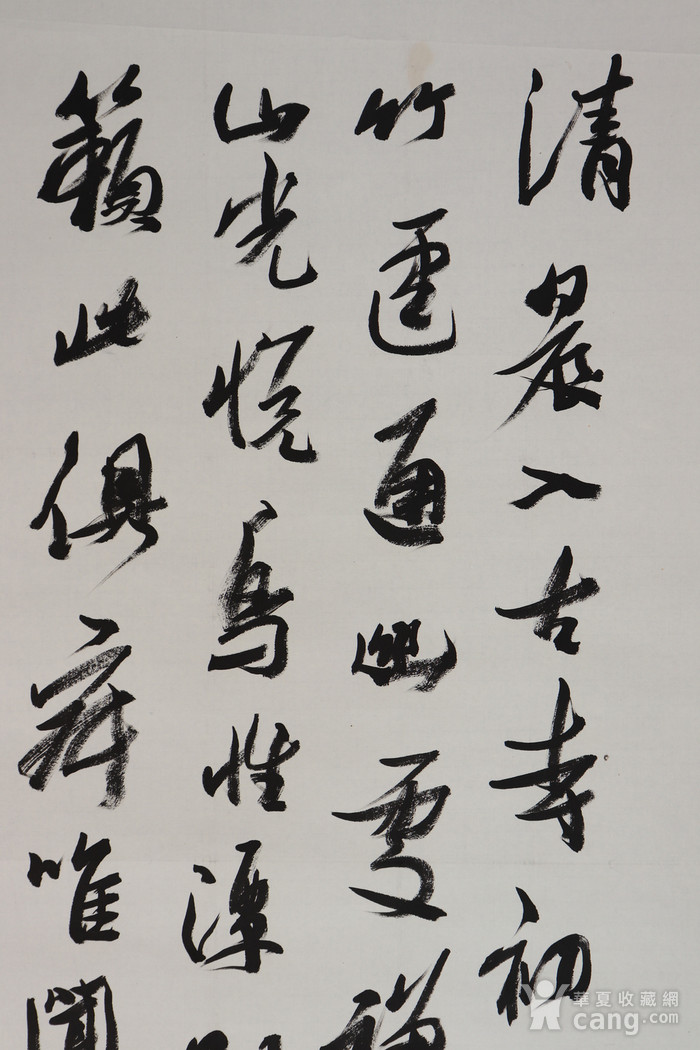 清晨入古寺初
竹逕通幽處禪
山光悦鳥性潭
籟此俱寂唯聞
華夏收藏網
cang.com